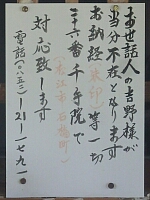 お世話人の吉野様が
当分不在となります
お納経(朱印)等一切
二十六番千手院で
(松江市石橋町)
対応致します
電話(〇八五二)一21一七九一